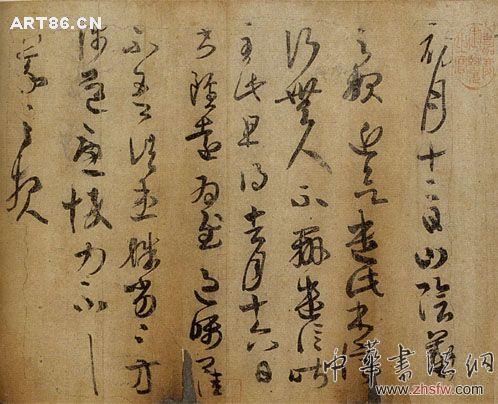 ART86.CN
初月十二日山陰羲
之報近欲遣此書停
行無人不辦遣信昨
至此且得去月十六日
書雖遠為慰過囑卿佳
不吾諸患殊劣〻方
涉道憂悴力不一一
羲之報
中華書畫網
www.zhsfw.com